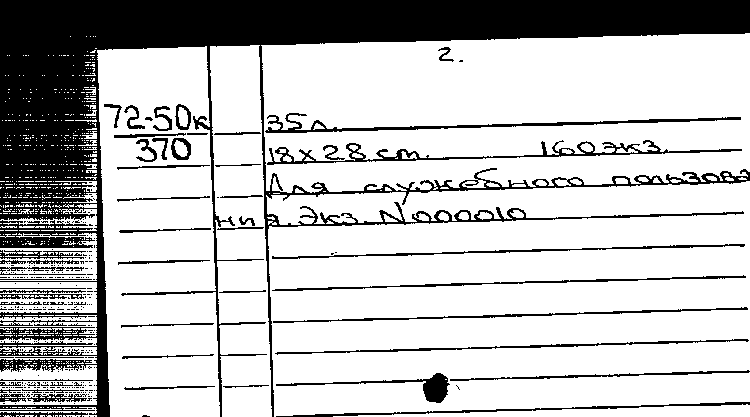 2.
72-50к 35л.
370 18х28 ст. 160экз.
Для служебного пользова
ния. Экз. N000010